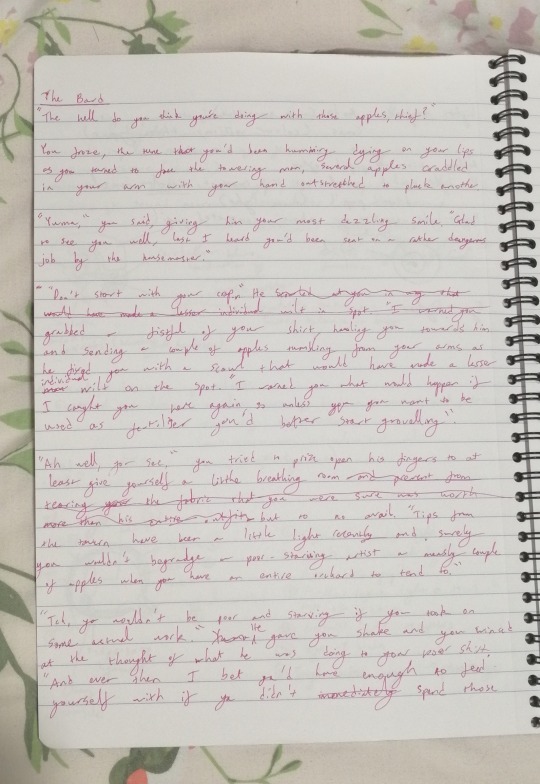 The Bard
"The hell do you think you're doing with those apples, thief?"
You froze, the tune that you'd been humming dying on your lips
as you turned to face the towering man, several apples craddled
in your arm with your hand outstretched to pluck another
"Yuma," you said, giving him your most dazzling smile, "Glad
to see you well, last I heard you'd been sent on a rather dangerous
job by the housemaster."
"Don't start with your crap." He scowled at you in a way that
would have made a lesser individual wilt on spot. "I warned you
grabbed a fistful of your shirt hauling you towards him
and sending a couple of apples tumbling from your arms as
he fixed you with a scowl that would have made a lesser
individual wilt on the spot. "I warned you what would happen if
I caught you here again so unless you want to be
used as fertiliser you'd better start grovelling."
"Ah well, you see," you tried to prize open his fingers to at
least give yourself a little breathing room and prevent from
tearing your the fabric that you were sure was worth
more than his entire outfit but to no avail. "Tips from
the tavern have been a little light recently and surely
you wouldn't begrudge a poor starving artist a measly couple
of apples when you have an entire orchard to tend to."
"Tch, ya wouldn't be poor and starving if you took on
some actual work." He gave you shake and you winced
at the thought of what he was doing to your poor shirt.
"And even then I bet ya'd have enough to feed
yourself with if ya didn't immediately spend those